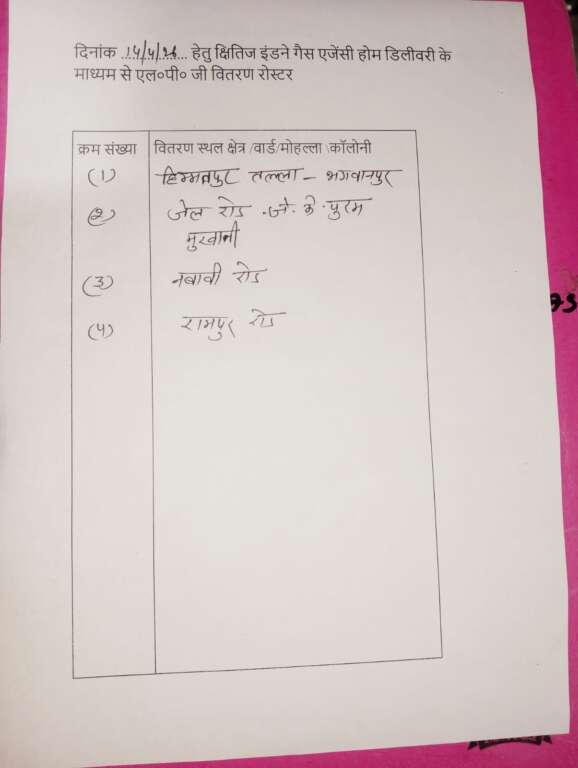 दिनांक 14/4/26 हेतु क्षितिज इंडने गैस एजेंसी होम डिलीवरी के
माध्यम से एल०पी० जी वितरण रोस्टर
क्रम संख्या वितरण स्थल क्षेत्र /वार्ड/मोहल्ला \कॉलोनी
(1) हिम्मतपुर तल्ला - भगवानपुर
(2) जेल रोड . जे. के . पुरम
मुखानी
(3) नवाबी रोड
(4) रामपुर रोड